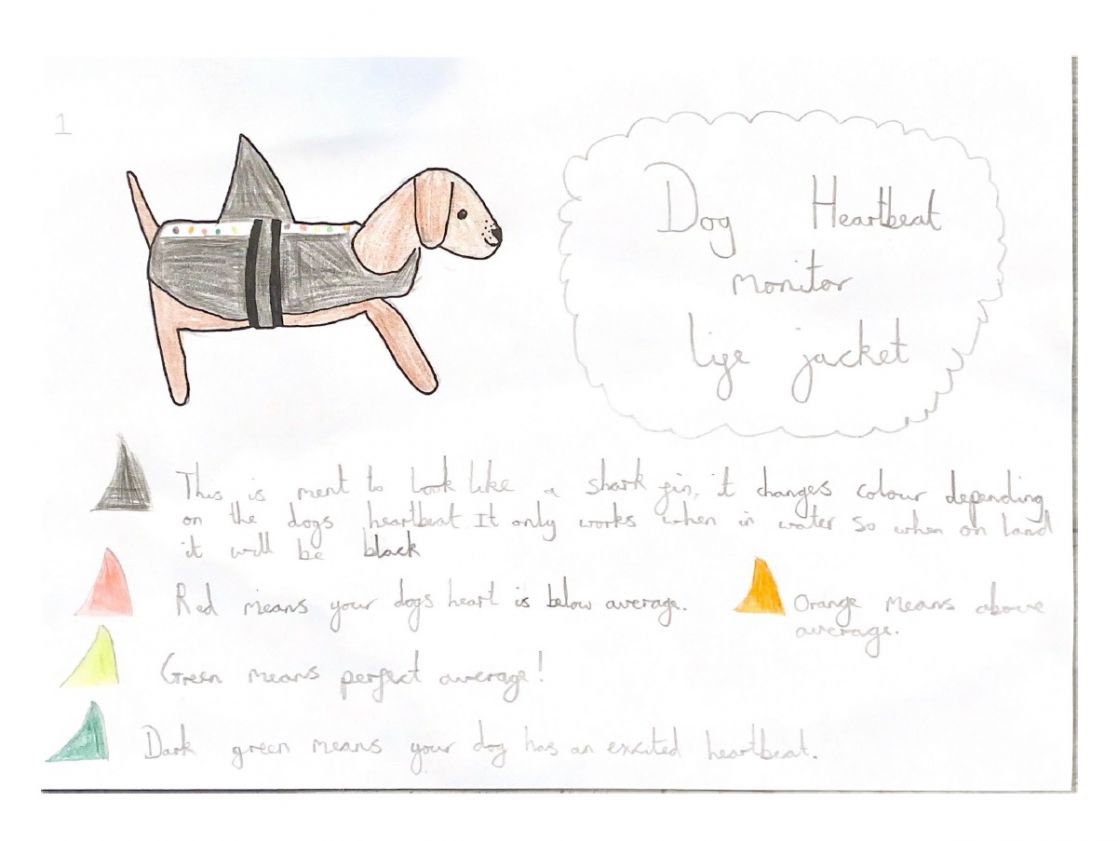 1
Dog Heartbeat
monitor
life jacket
This is ment to look like a shark fin, it changes colour depending
on the dogs heartbeat It only works when in water so when on land
it will be black
Red means your dogs heart is below average.
Orange means above
average.
Green means perfect average!
Dark green means your dog has an excited heartbeat.